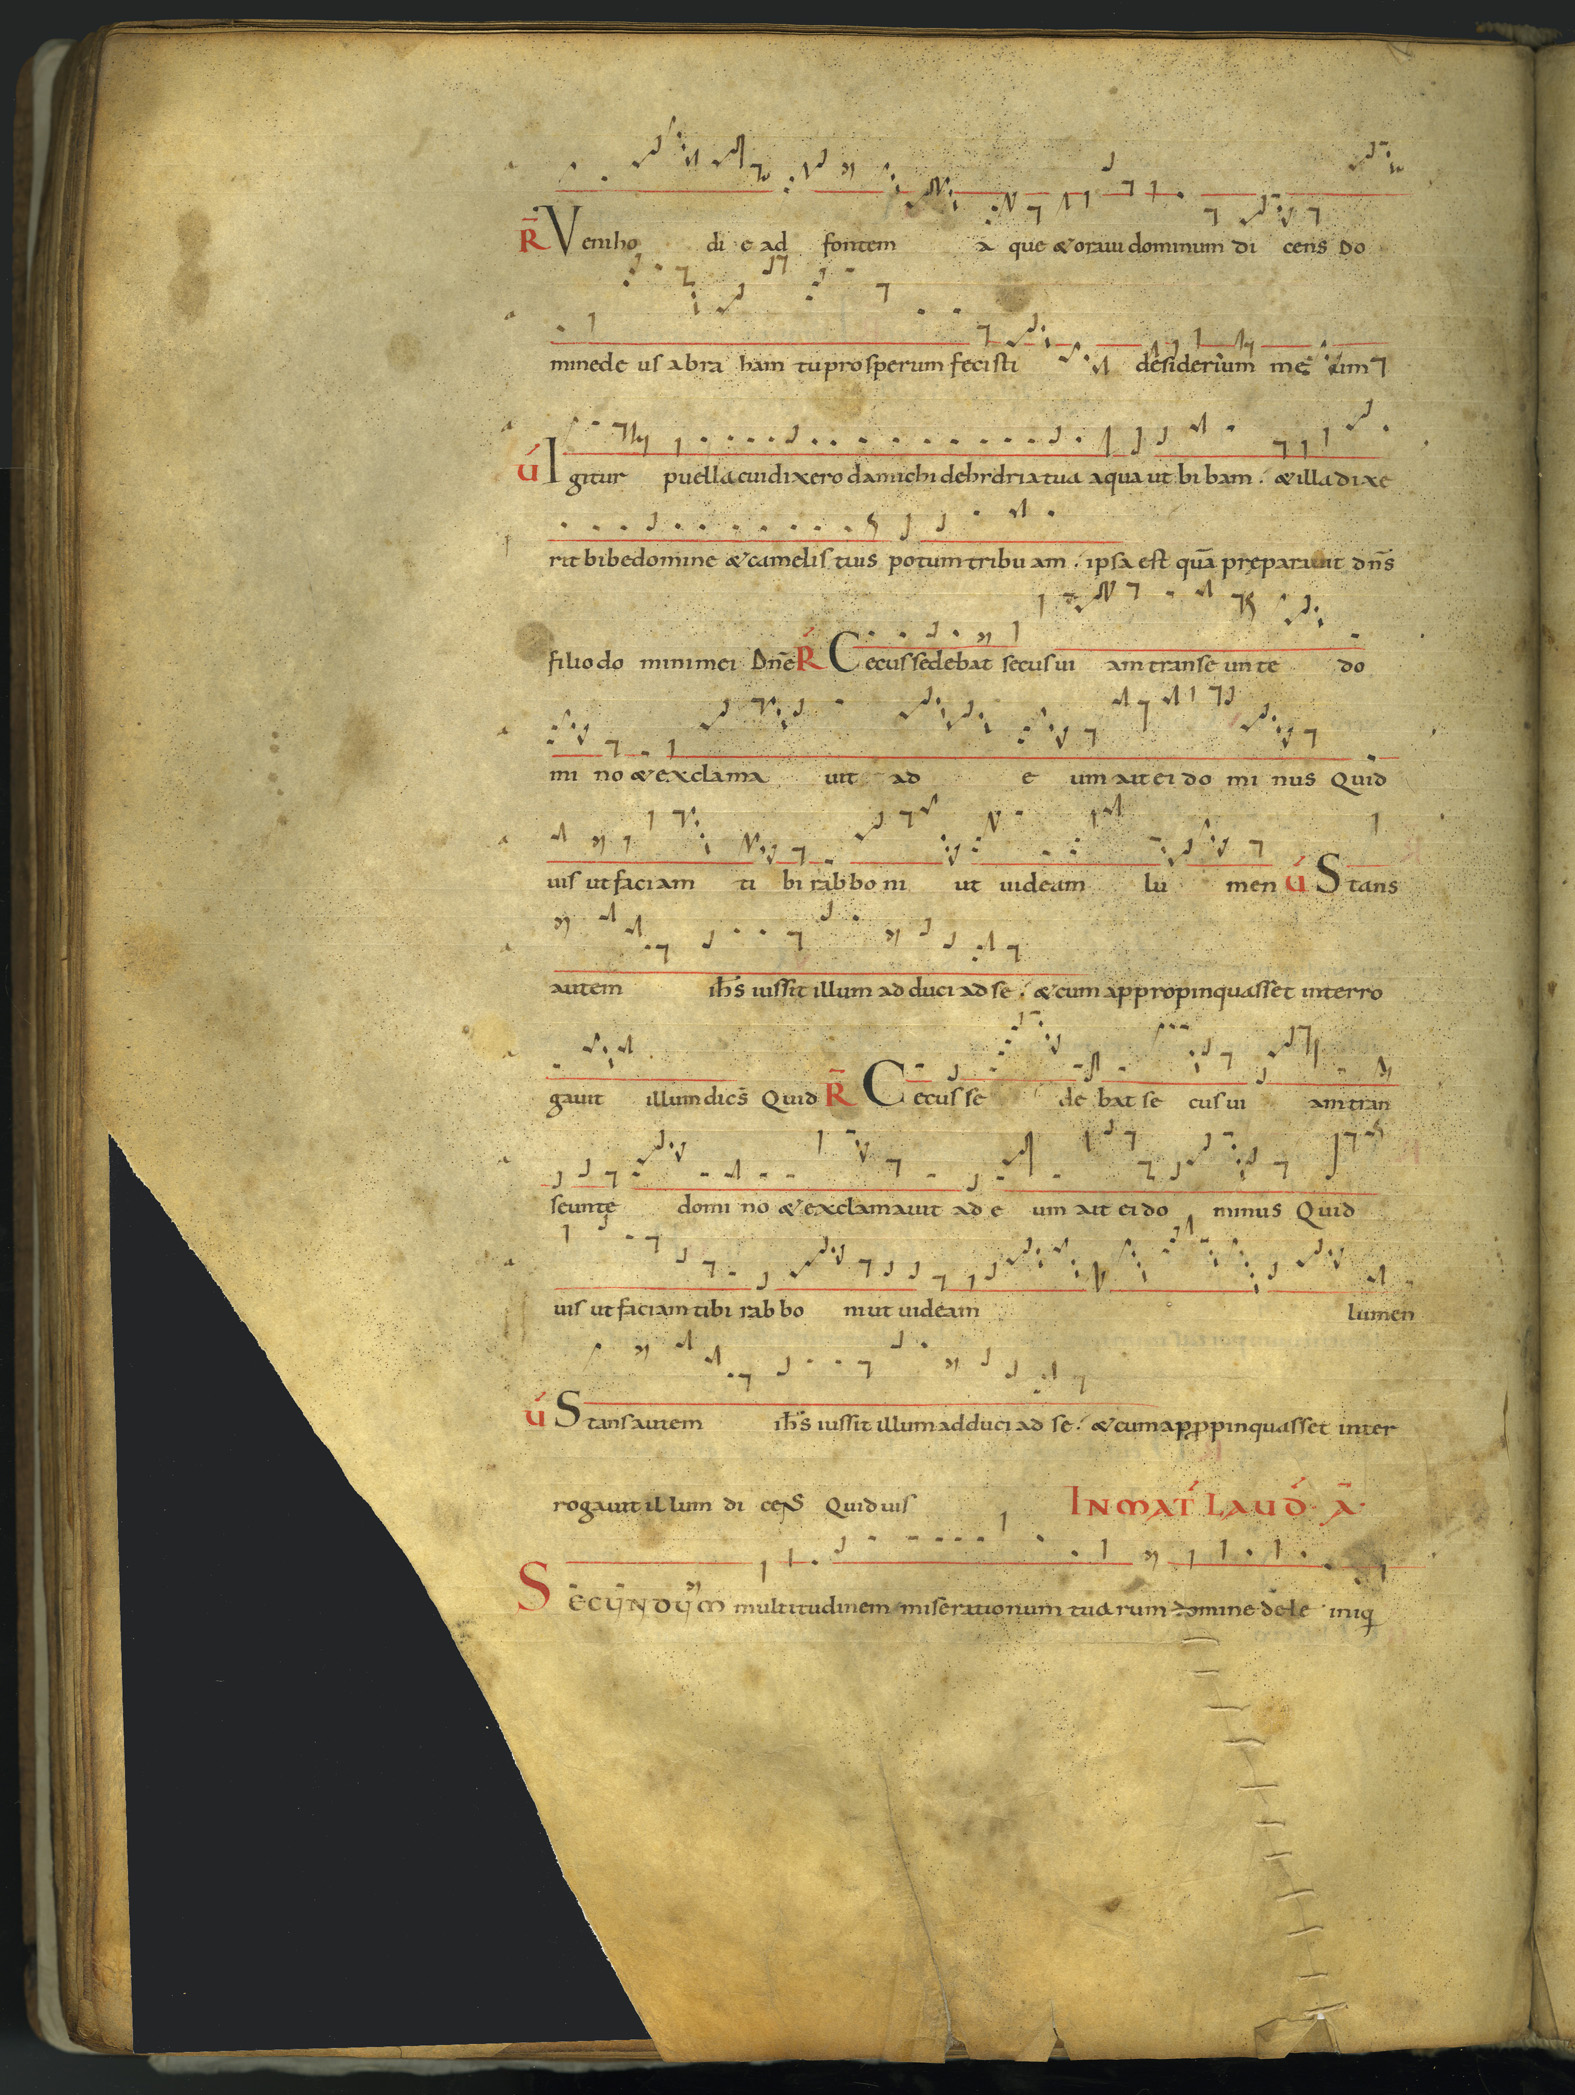 R̄ Veni ho di e ad fontem a que & oraui dominum di cens Do
minede us abra ham tu prosperum fecisti desiderium me um
V́ Igitur puella cui dixero da michi de hydria tua aqua ut bi bam . & illa dixe
rit bibe domine & camelis tuis potum tribu am . ipsa est quā pręparauit dn̄s
filio do mini mei Dn̄e R̄ Cecus sedebat secus ui am transe un te do
mi no & exclama uit ad e um ait ei do mi nus Quid
uis ut faciam ti bi rab bo ni ut uideam lu men V́ Stans
autem ih̄s iussit illum ad duci ad se . & cum appropinquasset interro
gauit illum dicēs Quid R̄ Cecus se de bat se cus ui am tran
seunte domi no & exclamauit ad e um ait ei do minus Quid
uis ut faciam tibi rab bo ni ut uideam lumen
V́ Stans autem ih̄s iussit illum adduci ad se . & cum appropinquasset inter
rogauit illum di cens Quid uis IN MAT́ LAUD́ . Ā .
SECUNDUM multitudinem miserationum tuarum domine dele iniq